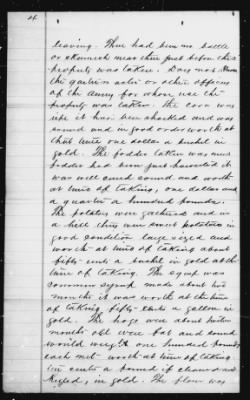 4
leaving. There had been no battle
or skirmish near there just before this
property was taken. Does not know
the quarter master or other officers
of the army for whose use the
property was taken. The corn was
ripe it had been shucked and was
sound and in good order worth at
that time one dollar a bushel in
gold. The fodder taken was
fodder had been just harvested it
was well cured sound and worth
at time of taking, one dollar and
a quarter a hundred pounds.
The potatoes were gathered and in
a hill they were sweet potatoes in
good condition large sized and
worth at time of taking about
fifty cents a bushel in gold at the
time of taking. The syrup was
common syrup made about two
months it was worth at the time
of taking fifty cents a gallon in
gold. The hogs were about
months old were fat and sound
would weigh one hundred pounds
each net worth at time of taking
ten cents a pound if cleaned and
in gold. The flour was